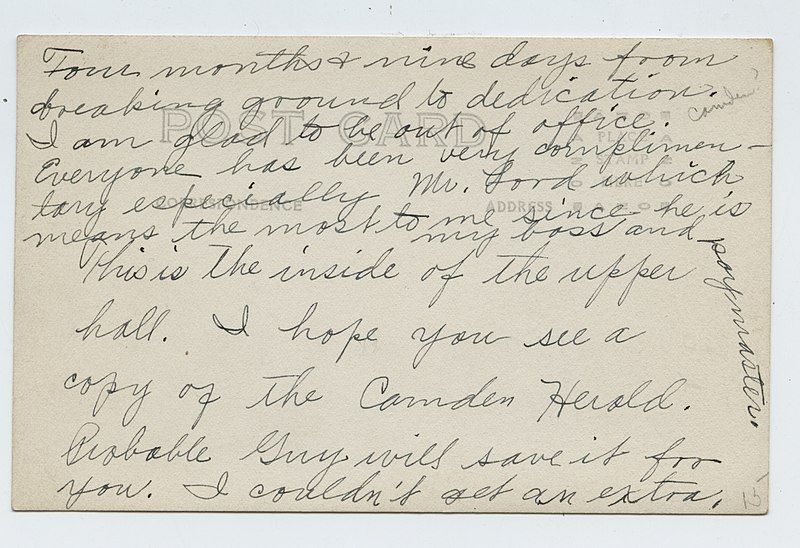 Four months & nine days from
breaking ground to dedication.
I am glad to be out of office.
Everyone has been very complimen-
tary especially Mr. Lord which
means the most to me since he is
my boss and paymaster.
This is the inside of the upper
hall. I hope you see a
copy of the Camden Herald.
Probable Guy will save it for
you. I couldn't get an extra.
Camden
POST CARD
CORRESPONDENCE
ADDRESS
PLACE
STAMP
HERE
15